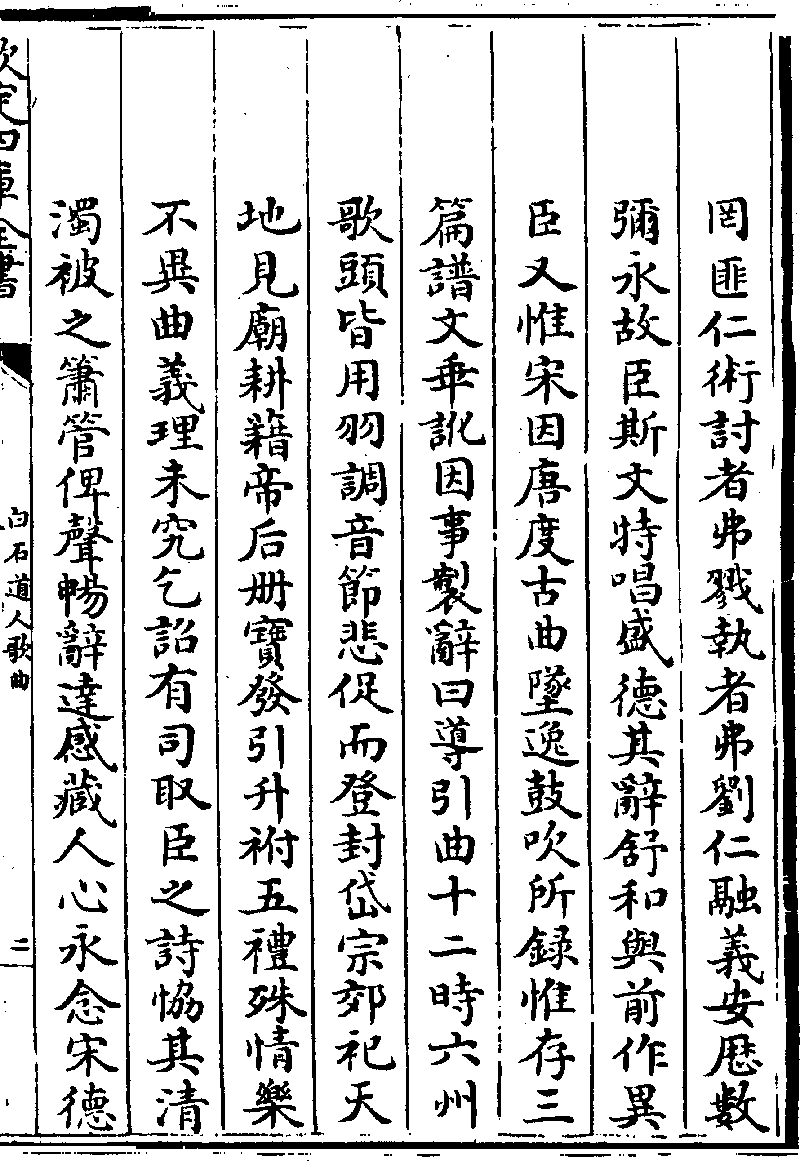 罔匪仁術討者弗戮執者弗劉仁融義安厯數
彌永故臣斯文特唱盛德其辭舒和與前作異
臣又惟宋因唐度古曲墜逸鼓吹所録惟存三
篇譜文乖訛因事製辭曰導引曲十二時六州
歌頭皆用羽調音節悲促而登封岱宗郊祀天
地見廟耕籍帝后册寶發引升祔五禮殊情樂
不異曲義理未究乞詔有司取臣之詩協其清
濁被之簫管俾聲暢辭達感藏人心永念宋德
欽定四庫全書
白石道人歌曲
二